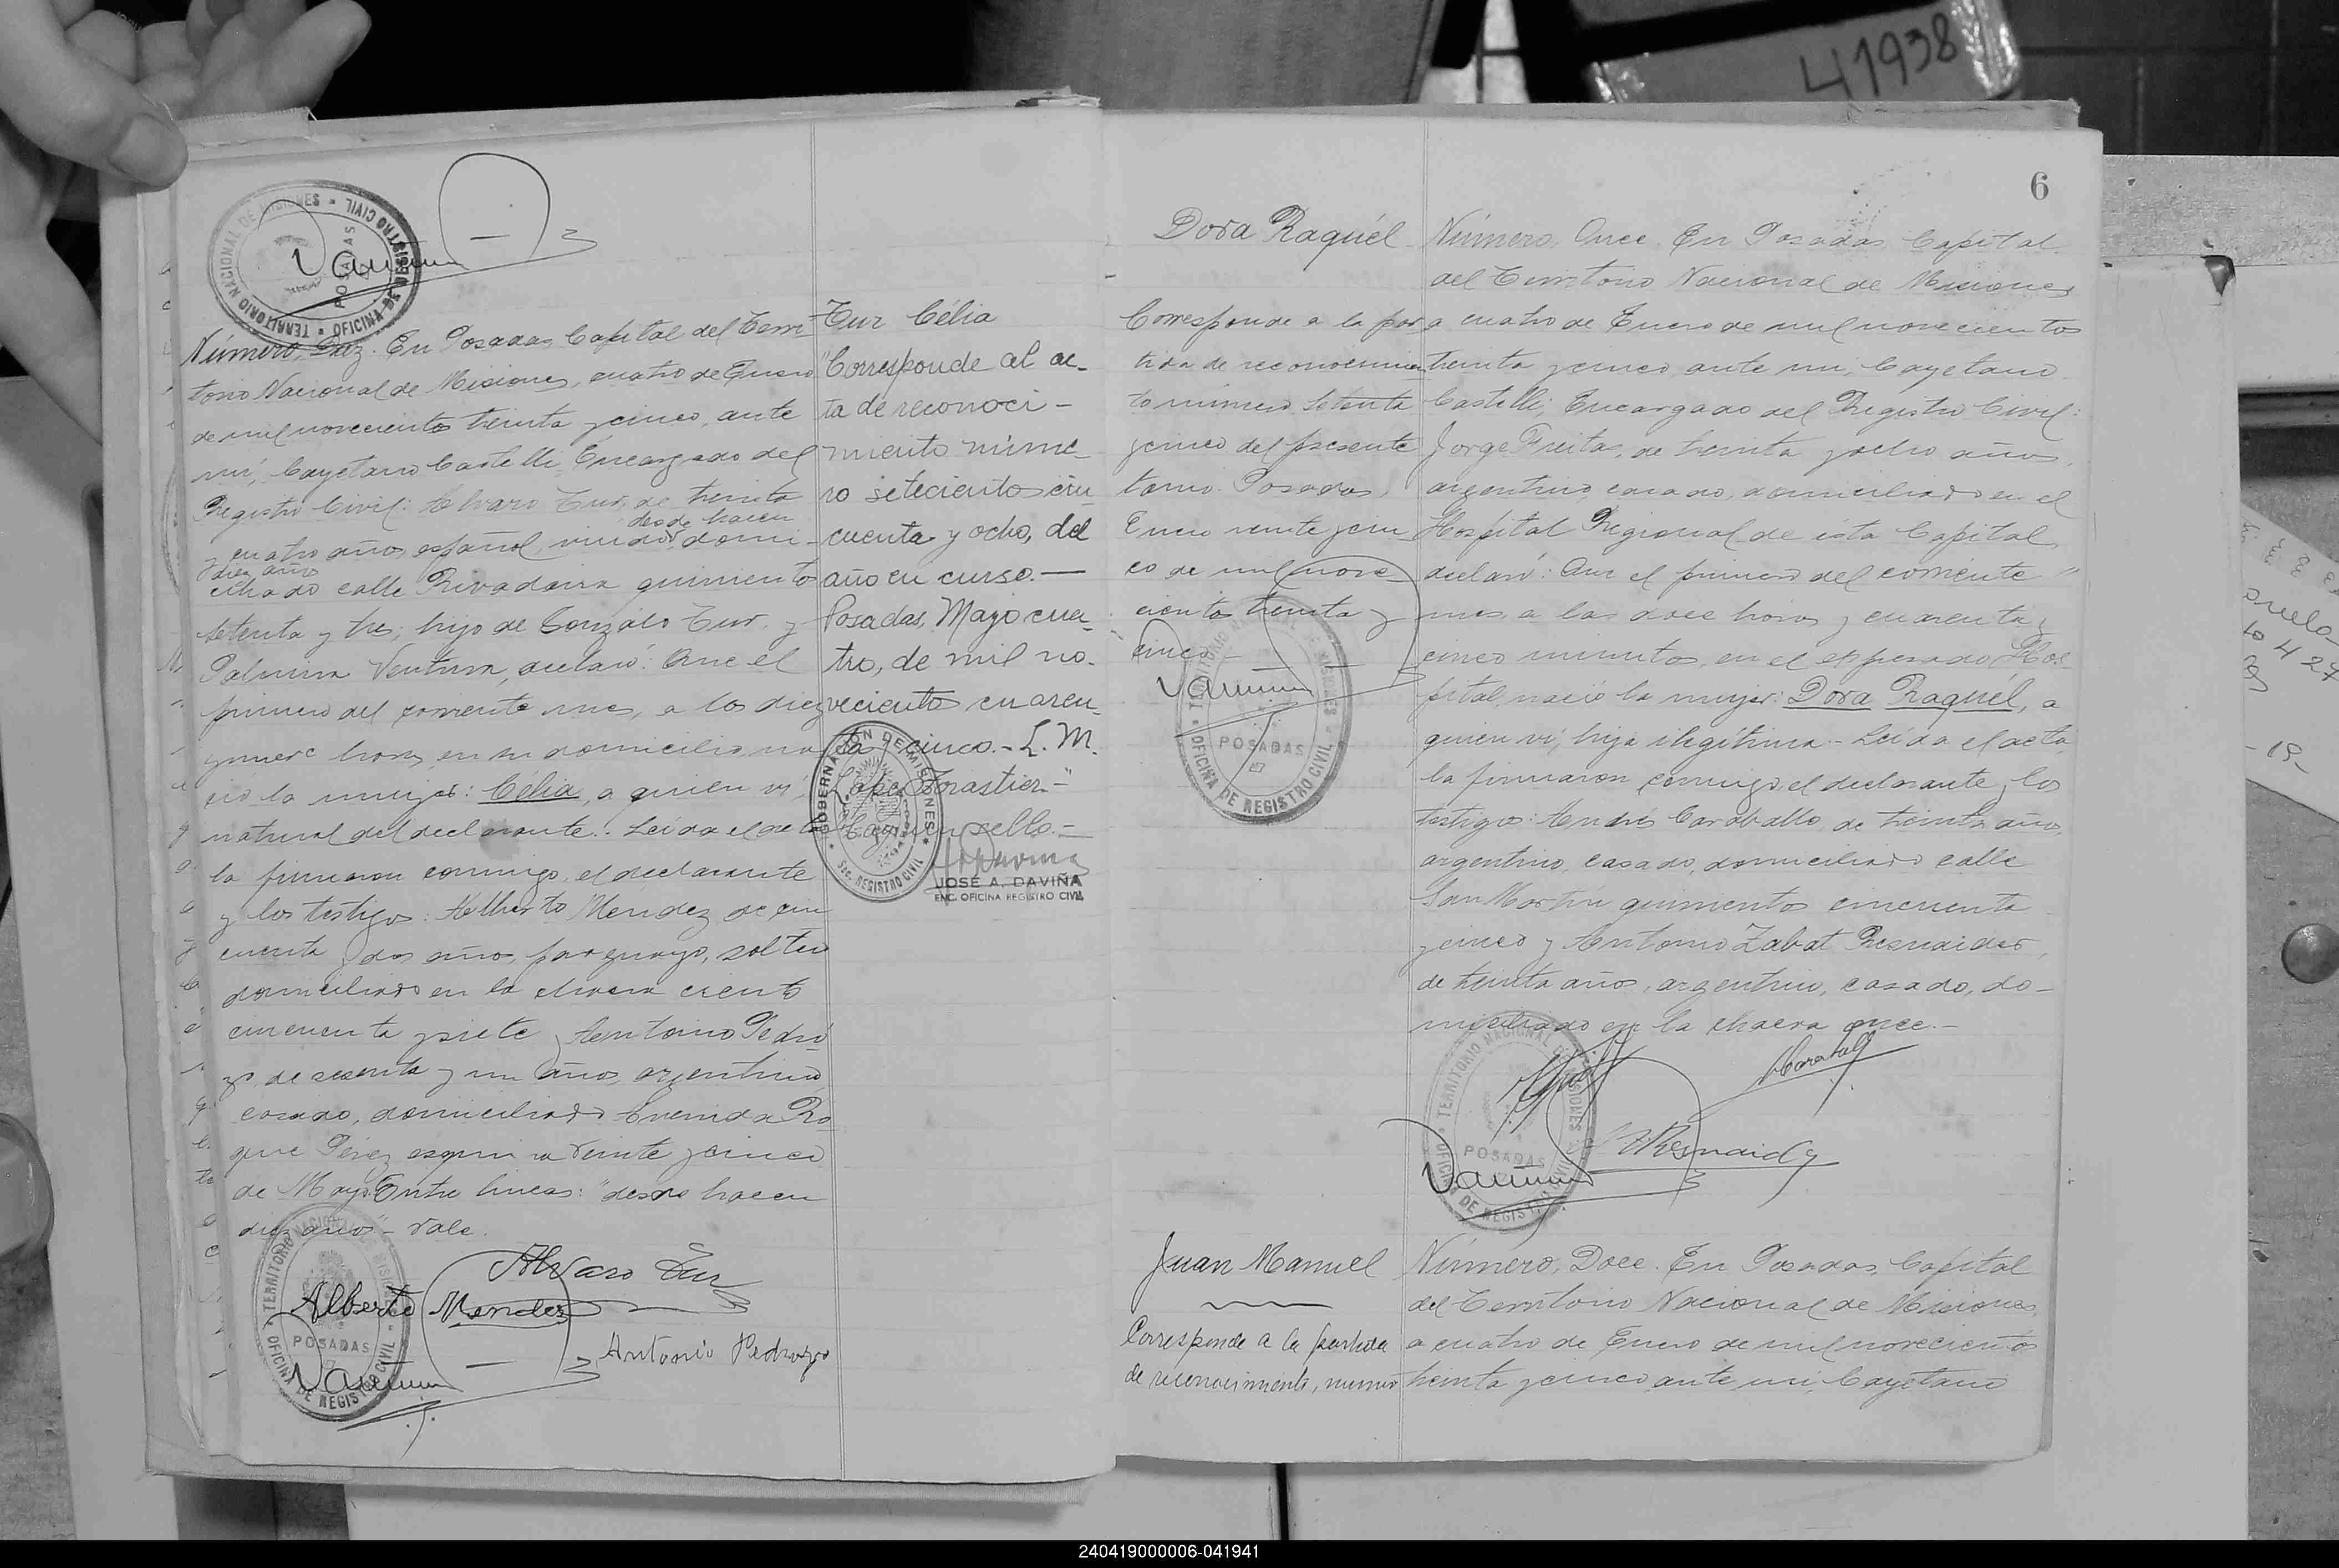 41938
6
TERRITORIO NACIONAL DE MISIONES
OFICINA DE REGISTRO CIVIL
POSADAS
Número, Diez. En Posadas, Capital del Terri-
torio Nacional de Misiones, cuatro de Enero
de mil novecientos treinta y cinco, ante
mí, Cayetano Castelli, Encargado del
Registro Civil: Alvaro Tur, de treinta
desde hacen
y cuatro años, español, viudo domi-
diez años
ciliado calle Rivadavia quinientos
setenta y tres, hijo de Gonzalo Tur y
Palmira Ventura, declaró: Que el
primero del corriente mes, a las diez
y nueve horas, en su domicilio na
ció la mujer: Célia, a quien ví,
natural del declarante.- Leida el acta
la firmaron conmigo, el declarante
y los testigos: Alberto Mendez, de cin
cuenta y dos años, paraguayo, soltero
domiciliado en la chacra ciento
cincuenta y siete y Antonio Pedro
zo, de sesenta y un años, argentino,
casado, domiciliado Avenida Ro
que Pérez esquina Veinte y cinco
de Mayo. Entre lineas: "desde hacen
diez años"- Vale.
Alvaro Tur
Alberto Mendez
Antonio Pedrozo
TERRITORIO NACIONAL DE MISIONES
OFICINA DE REGISTRO CIVIL
POSADAS
Tur Célia
"Corresponde al ac-
ta de reconoci-
miento núme-
ro setecientos cin
cuenta y ocho, del
año en curso.-
Posadas, Mayo cua-
tro, de mil no-
vecientos cuaren-
ta y cinco.- L. M.
Lopez Forastier.-"
Hay un sello.-
GOBERNACION DE MISIONES
SEC. REGISTRO CIVIL
JOSÉ A. DAVIÑA
ENC. OFICINA REGISTRO CIVIL
Dora Raquél
Corresponde a la par
tida de reconocimien
to número setenta
y cinco del presente
tomo. Posadas,
Enero veinte y cin
co de mil nove
cientos treinta y
cinco.-
TERRITORIO NACIONAL DE MISIONES
OFICINA DE REGISTRO CIVIL
POSADAS
Número, Once. En Posadas, Capital
del Territorio Nacional de Misiones
a cuatro de Enero de mil novecientos
treinta y cinco, ante mi, Cayetano
Castelli, Encargado del Registro Civil:
Jorge Freita, de treinta y ocho años,
argentino, casado, domiciliado en el
Hospital Regional de ésta Capital,
declaró: Que el primero del corriente
mes, a las doce horas y cuarenta y
cinco minutos, en el expresado Hos-
pital, nació la mujer: Dora Raquél, a
quien ví, hija ilegítima.- Leida el acta
la firmaron conmigo, el declarante, los
testigos: Andrés Caraballo, de treinta años,
argentino, casado, domiciliado calle
San Martín quinientos cincuenta
y cinco y Antonio Zabat Resnaider,
de treinta años, argentino, casado, do-
miciliado en la chacra once.-
TERRITORIO NACIONAL DE MISIONES
OFICINA DE REGISTRO CIVIL
POSADAS
Juan Manuel
Corresponde a la partida
de reconocimiento, numero
Número, Doce. En Posadas, Capital
del Territorio Nacional de Misiones,
a cuatro de Enero de mil novecientos
treinta y cinco, ante mi, Cayetano
240419000006-041941